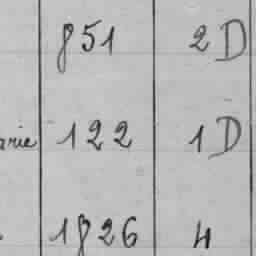 851 2D
122 1D
1826 4